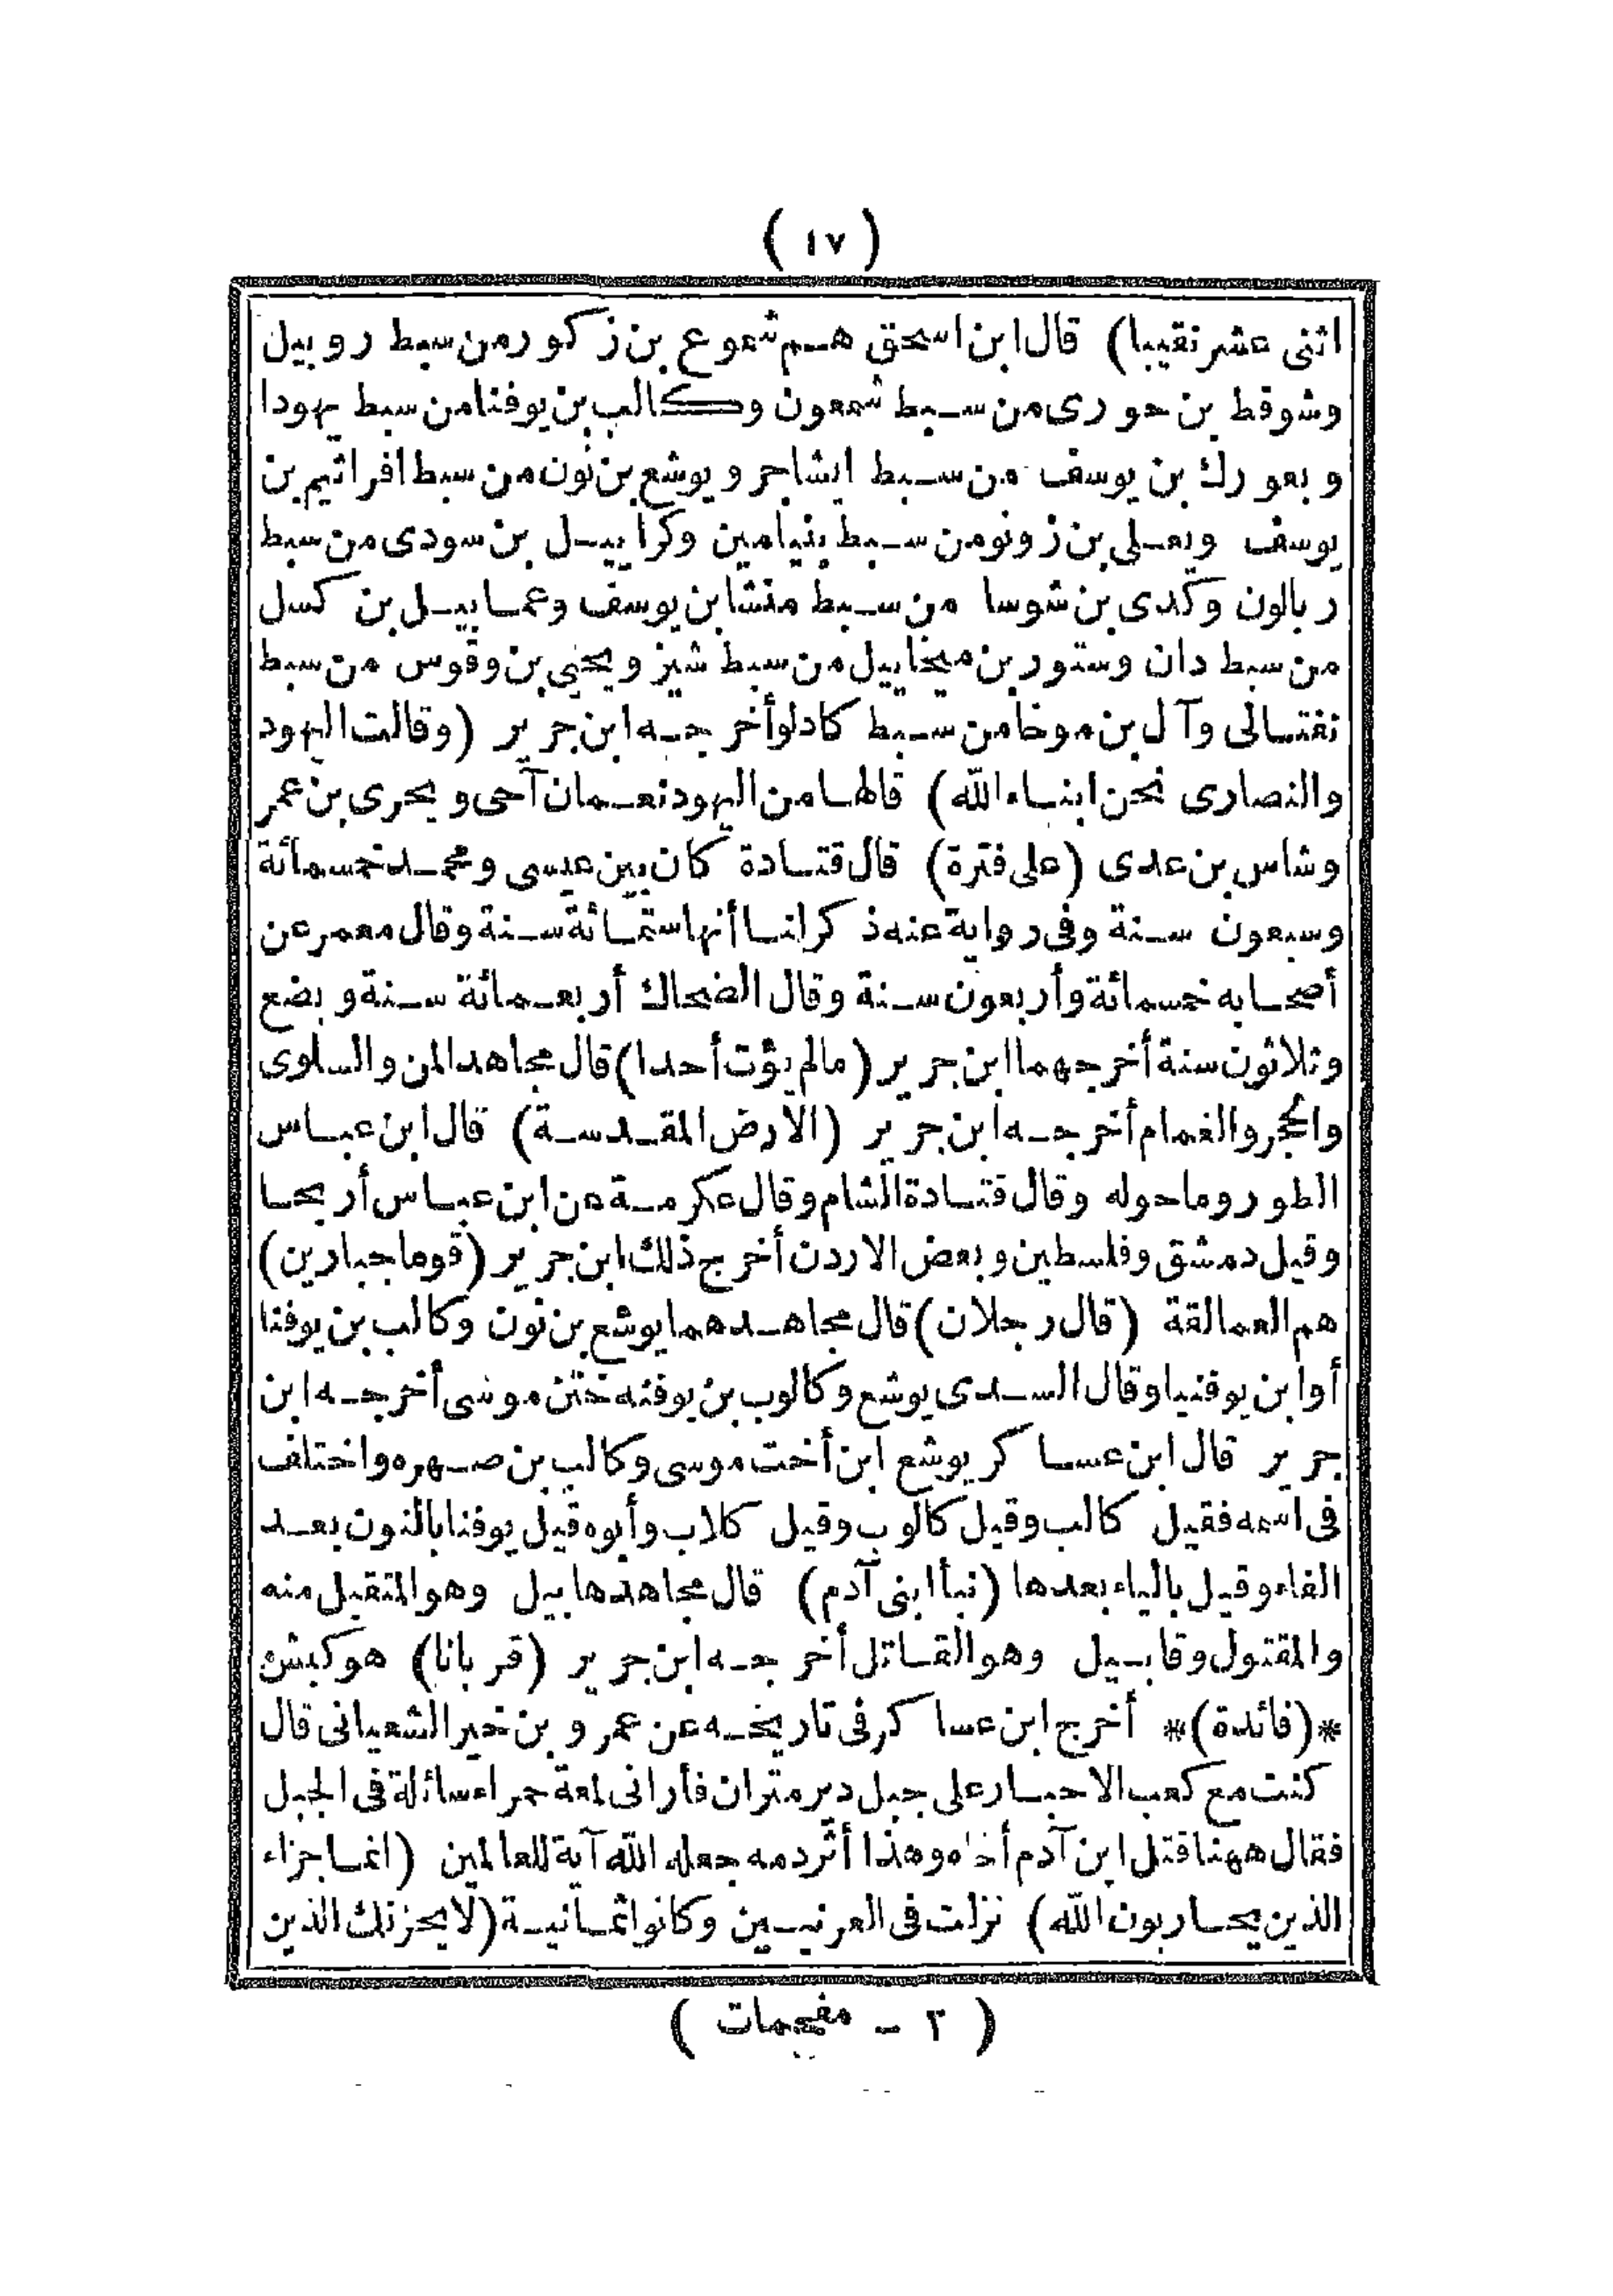 ( ١٧ )
اثنى عشر نقيبا) قال ابن اسحق هم شموع بن زكور من سبط روبيل
وشوقط بن حورى من سبط شمعون وكالب بن يوفنا من سبط يهودا
وبعورك بن يوسف من سبط ايشاجر ويوشع بن نون من سبط افراثيم بن
يوسف ويعلى بن زونو من سبط بنيامين وكرابيل بن سودى من سبط
ربالون وكدى بن شوسا من سبط منشا بن يوسف وعمابيل بن كسل
من سبط دان وستور بن ميخاييل من سبط شيز ويحيى بن وقوس من سبط
نفتالى وآل بن موخا من سبط كادلو أخرجه ابن جرير (وقالت اليهود
والنصارى نحن ابناء الله) قالها من اليهود نعمان آحى ويحرى بن عمر
وشاس بن عدى (على فترة) قال قتادة كان بين عيسى ومحمد خمسمائة
وسبعون سنة وفى رواية عنه ذكر لنا أنها ستمائة سنة وقال معمر عن
أصحابه خمسمائة وأربعون سنة وقال الضحاك أربعمائة سنة وبضع
وثلاثون سنة أخرجهما ابن جرير (مالم يؤت أحدا) قال مجاهد المن والسلوى
والحجر والغمام أخرجه ابن جرير (الأرض المقدسة) قال ابن عباس
الطور وما حوله وقال قتادة الشام وقال عكرمة عن ابن عباس أريحا
وقيل دمشق وفلسطين وبعض الاردن أخرج ذلك ابن جرير (قوما جبارين)
هم العمالقة (قال رجلان) قال مجاهد هما يوشع بن نون وكالب بن يوفنا
أو ابن يوفنيا وقال السدى يوشع وكالوب بن يوفنه ختن موسى أخرجه ابن
جرير قال ابن عساكر يوشع ابن أخت موسى وكالب بن صهره واختلف
فى اسمه فقيل كالب وقيل كالوب وقيل كلاب وأبوه قيل يوفنا بالنون بعد
الفاء وقيل بالياء بعدها (نبأ ابنى آدم) قال مجاهد هابيل وهو المتقبل منه
والمقتول وقابيل وهو القاتل أخرجه ابن جرير (قربانا) هو كبش
*(فائدة)* أخرج ابن عساكر فى تاريخه عن عمرو بن خير الشعبانى قال
كنت مع كعب الاحبار على جبل دير متران فأرانى لمعة حمراء سائلة فى الجبل
فقال ههنا قتل ابن آدم أخاه وهذا أثر دمه جعله الله آية للعالمين (انما جزاء
الذين يحاربون الله) نزلت فى العرنيين وكانوا ثمانية (لا يحزنك الذين
( ٢ - مفحمات )